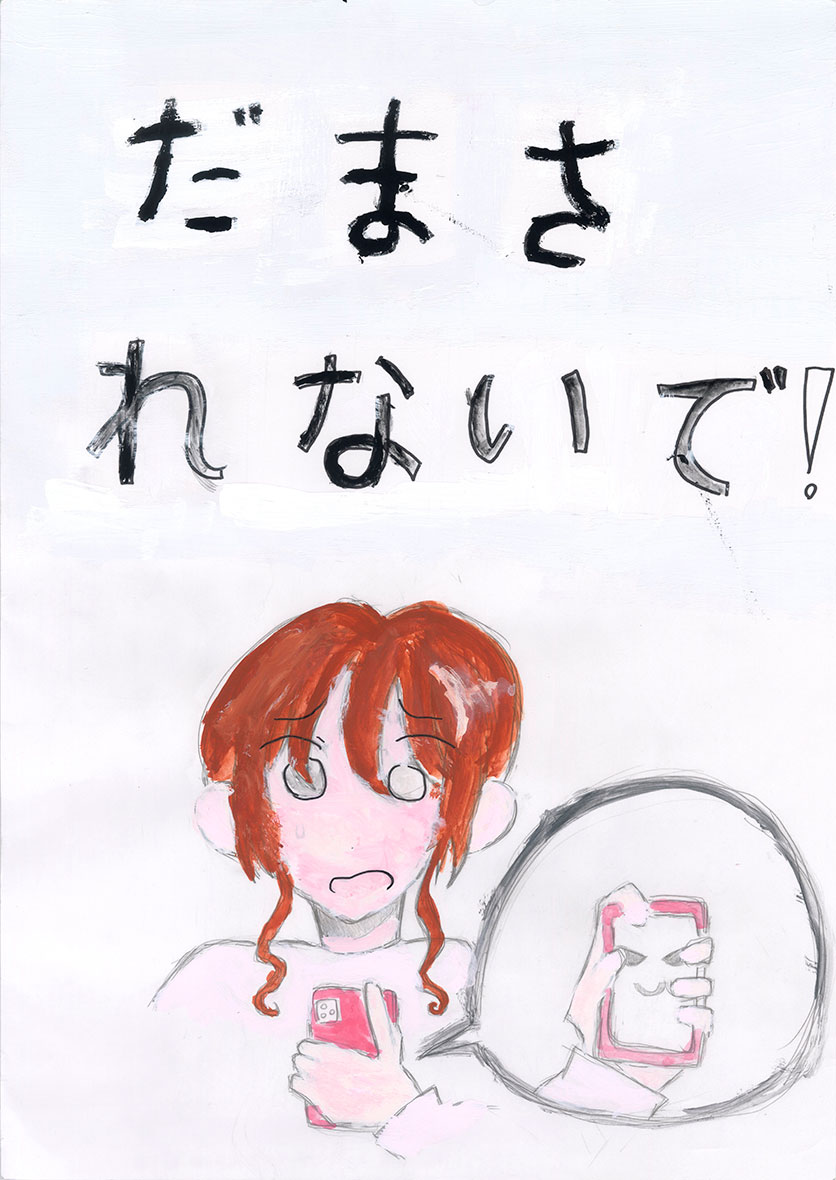 だまさ
れないで!